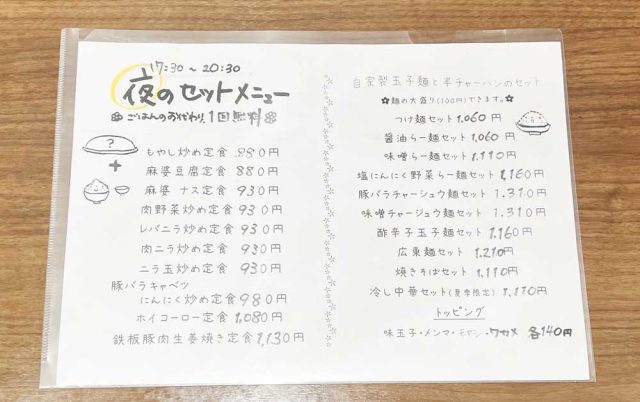 17:30～20:30
夜のセットメニュー
ごはんのおかわり1回無料
?
+
もやし炒め定食 880円
麻婆豆腐定食 880円
麻婆ナス定食 930円
肉野菜炒め定食 930円
レバニラ炒め定食 930円
肉ニラ炒め定食 930円
ニラ玉炒め定食 930円
豚バラキャベツ
にんにく炒め定食 980円
ホイコーロー定食 1,080円
鉄板豚肉生姜焼き定食 1,130円
自家製玉子麺と半チャーハンのセット
✿麺の大盛り(100円)できます。✿
つけ麺セット 1,060円
醤油らー麺セット 1,060円
味噌らー麺セット 1,110円
塩にんにく野菜らー麺セット 1,160円
豚バラチャーシュウ麺セット 1,310円
味噌チャーシュウ麺セット 1,310円
酢辛子玉子麺セット 1,160円
広東麺セット 1,210円
焼きそばセット 1,110円
冷し中華セット(夏季限定) 1,110円
トッピング
味玉子・メンマ・モヤシ・ワカメ 各140円